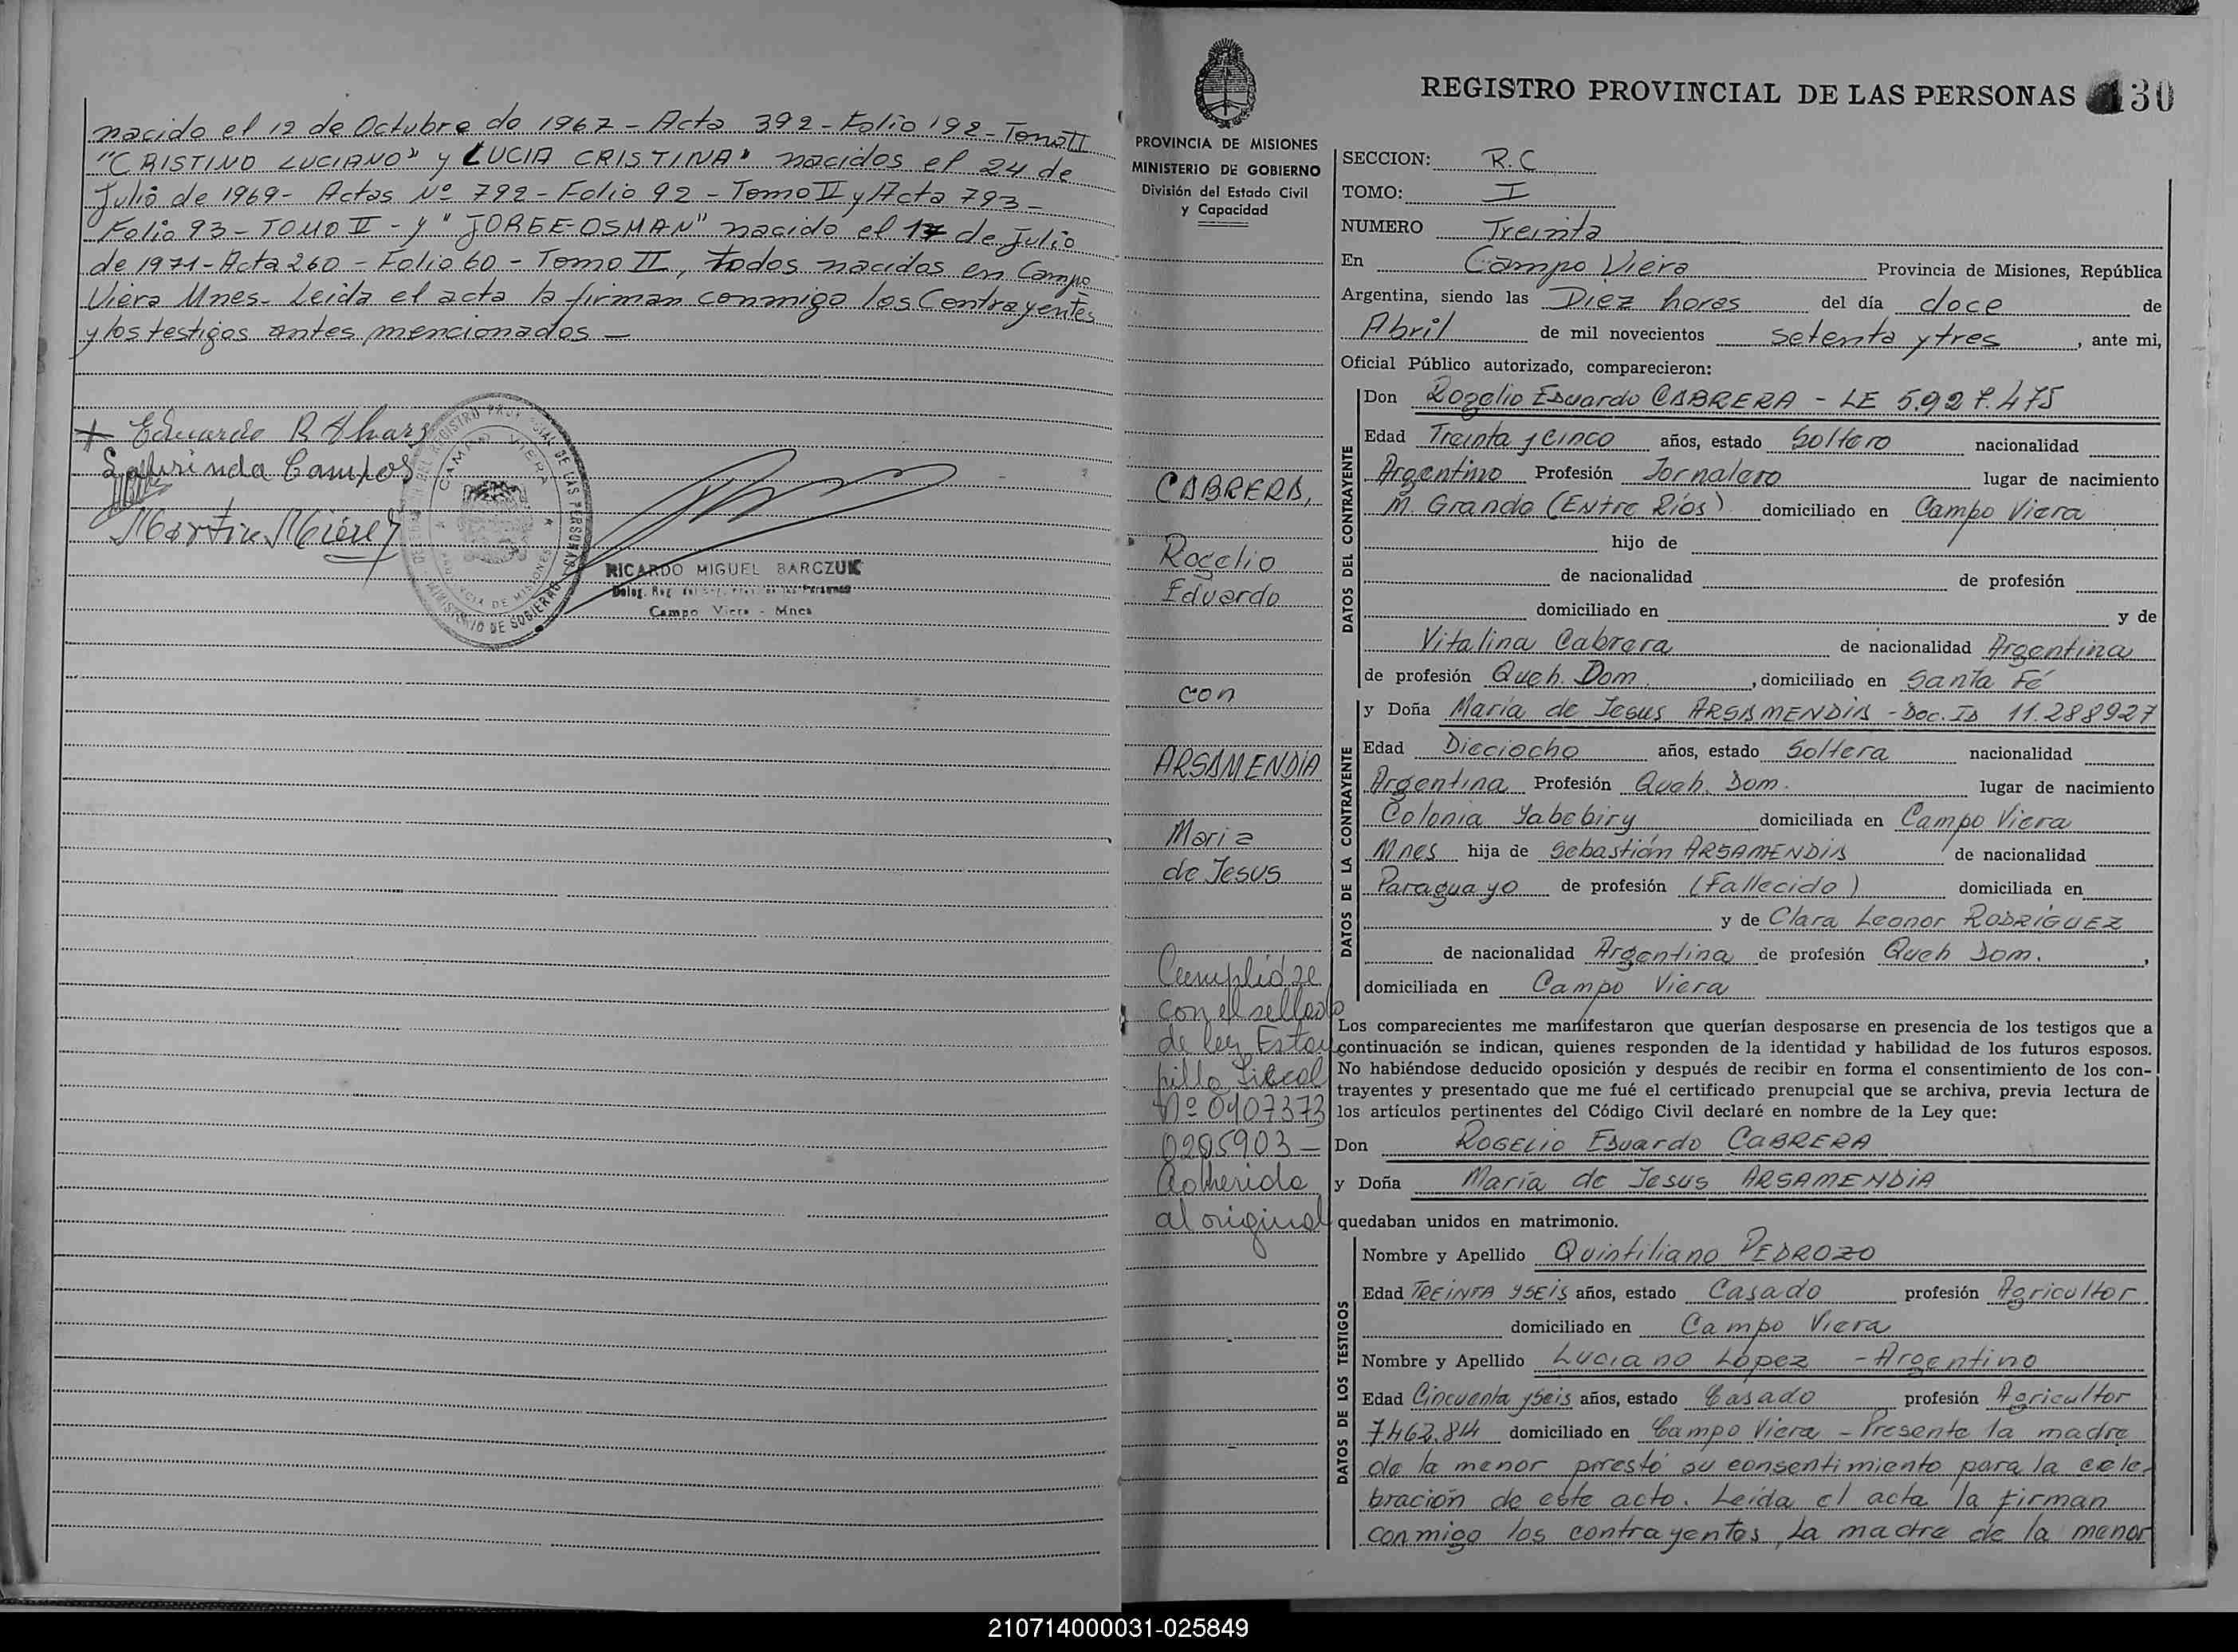 nacido el 12 de Octubre de 1967 - Acta 392 - Folio 192 - Tomo II
"CRISTINO LUCIANO" y LUCIA CRISTINA" nacidos el 24 de
Julio de 1969 - Actas Nº 792 - Folio 92 - Tomo II y Acta 793 -
Folio 93 - TOMO II - y "JORGE-OSMAN" nacido el 17 de Julio
de 1971 - Acta 260 - Folio 60 - Tomo II, todos nacidos en Campo
Viera Mnes. Leida el acta la firman conmigo los Contrayentes
y los testigos antes mencionados -
Eduardo R
Campos
Martin
CAMPO VIERA
PROVINCIA DE MISIONES
MINISTERIO DE GOBIERNO
RICARDO MIGUEL BARCZUK
Campo Viera - Mnes
REGISTRO PROVINCIAL DE LAS PERSONAS 130
PROVINCIA DE MISIONES
MINISTERIO DE GOBIERNO
División del Estado Civil
y Capacidad
CABRERA,
Rogelio
Eduardo
con
ARSAMENDIA
Maria
de Jesus
Cumplidose
con el sellado
de ley Estam
pilla Fiscal
Nº 0907373
0205903 -
Adherida
al original
SECCION: R.C
TOMO: I
NUMERO Treinta
En Campo Viera Provincia de Misiones, República
Argentina, siendo las Diez horas del día doce de
Abril de mil novecientos setenta y tres, ante mi,
Oficial Público autorizado, comparecieron:
DATOS DEL CONTRAYENTE
Don Rogelio Eduardo CABRERA - LE 5.927.475
Edad Treinta y Cinco años, estado Soltero nacionalidad
Argentino Profesión Jornalero lugar de nacimiento
M. Grande (Entre Ríos) domiciliado en Campo Viera
hijo de
de nacionalidad de profesión
domiciliado en y de
Vitalina Cabrera de nacionalidad Argentina
de profesión Queh. Dom., domiciliado en Santa Fé
DATOS DE LA CONTRAYENTE
y Doña Maria de Jesus ARSAMENDIA - Doc. ID 11.288927
Edad Dieciocho años, estado Soltera nacionalidad
Argentina Profesión Queh. Dom. lugar de nacimiento
Colonia Yabebiry domiciliada en Campo Viera
Mnes hija de Sebastián ARSAMENDIA de nacionalidad
Paraguayo de profesión (Fallecido) domiciliada en
y de Clara Leonor RODRÍGUEZ
de nacionalidad Argentina de profesión Queh Dom.,
domiciliada en Campo Viera
Los comparecientes me manifestaron que querían desposarse en presencia de los testigos que a
continuación se indican, quienes responden de la identidad y habilidad de los futuros esposos.
No habiéndose deducido oposición y después de recibir en forma el consentimiento de los con-
trayentes y presentado que me fué el certificado prenupcial que se archiva, previa lectura de
los artículos pertinentes del Código Civil declaré en nombre de la Ley que:
Don ROGELIO Eduardo CABRERA
y Doña María de Jesus ARSAMENDIA
quedaban unidos en matrimonio.
DATOS DE LOS TESTIGOS
Nombre y Apellido Quintiliano PEDROZO
Edad TREINTA Y SEIS años, estado Casado profesión Agricultor
domiciliado en Campo Viera
Nombre y Apellido Luciano López - Argentino
Edad Cincuenta y Seis años, estado Casado profesión Agricultor
7.462.814 domiciliado en Campo Viera - Presente la madre
de la menor prestó su consentimiento para la cele-
bración de este acto. Leída el acta la firman
conmigo los contrayentes, La madre de la menor
210714000031-025849